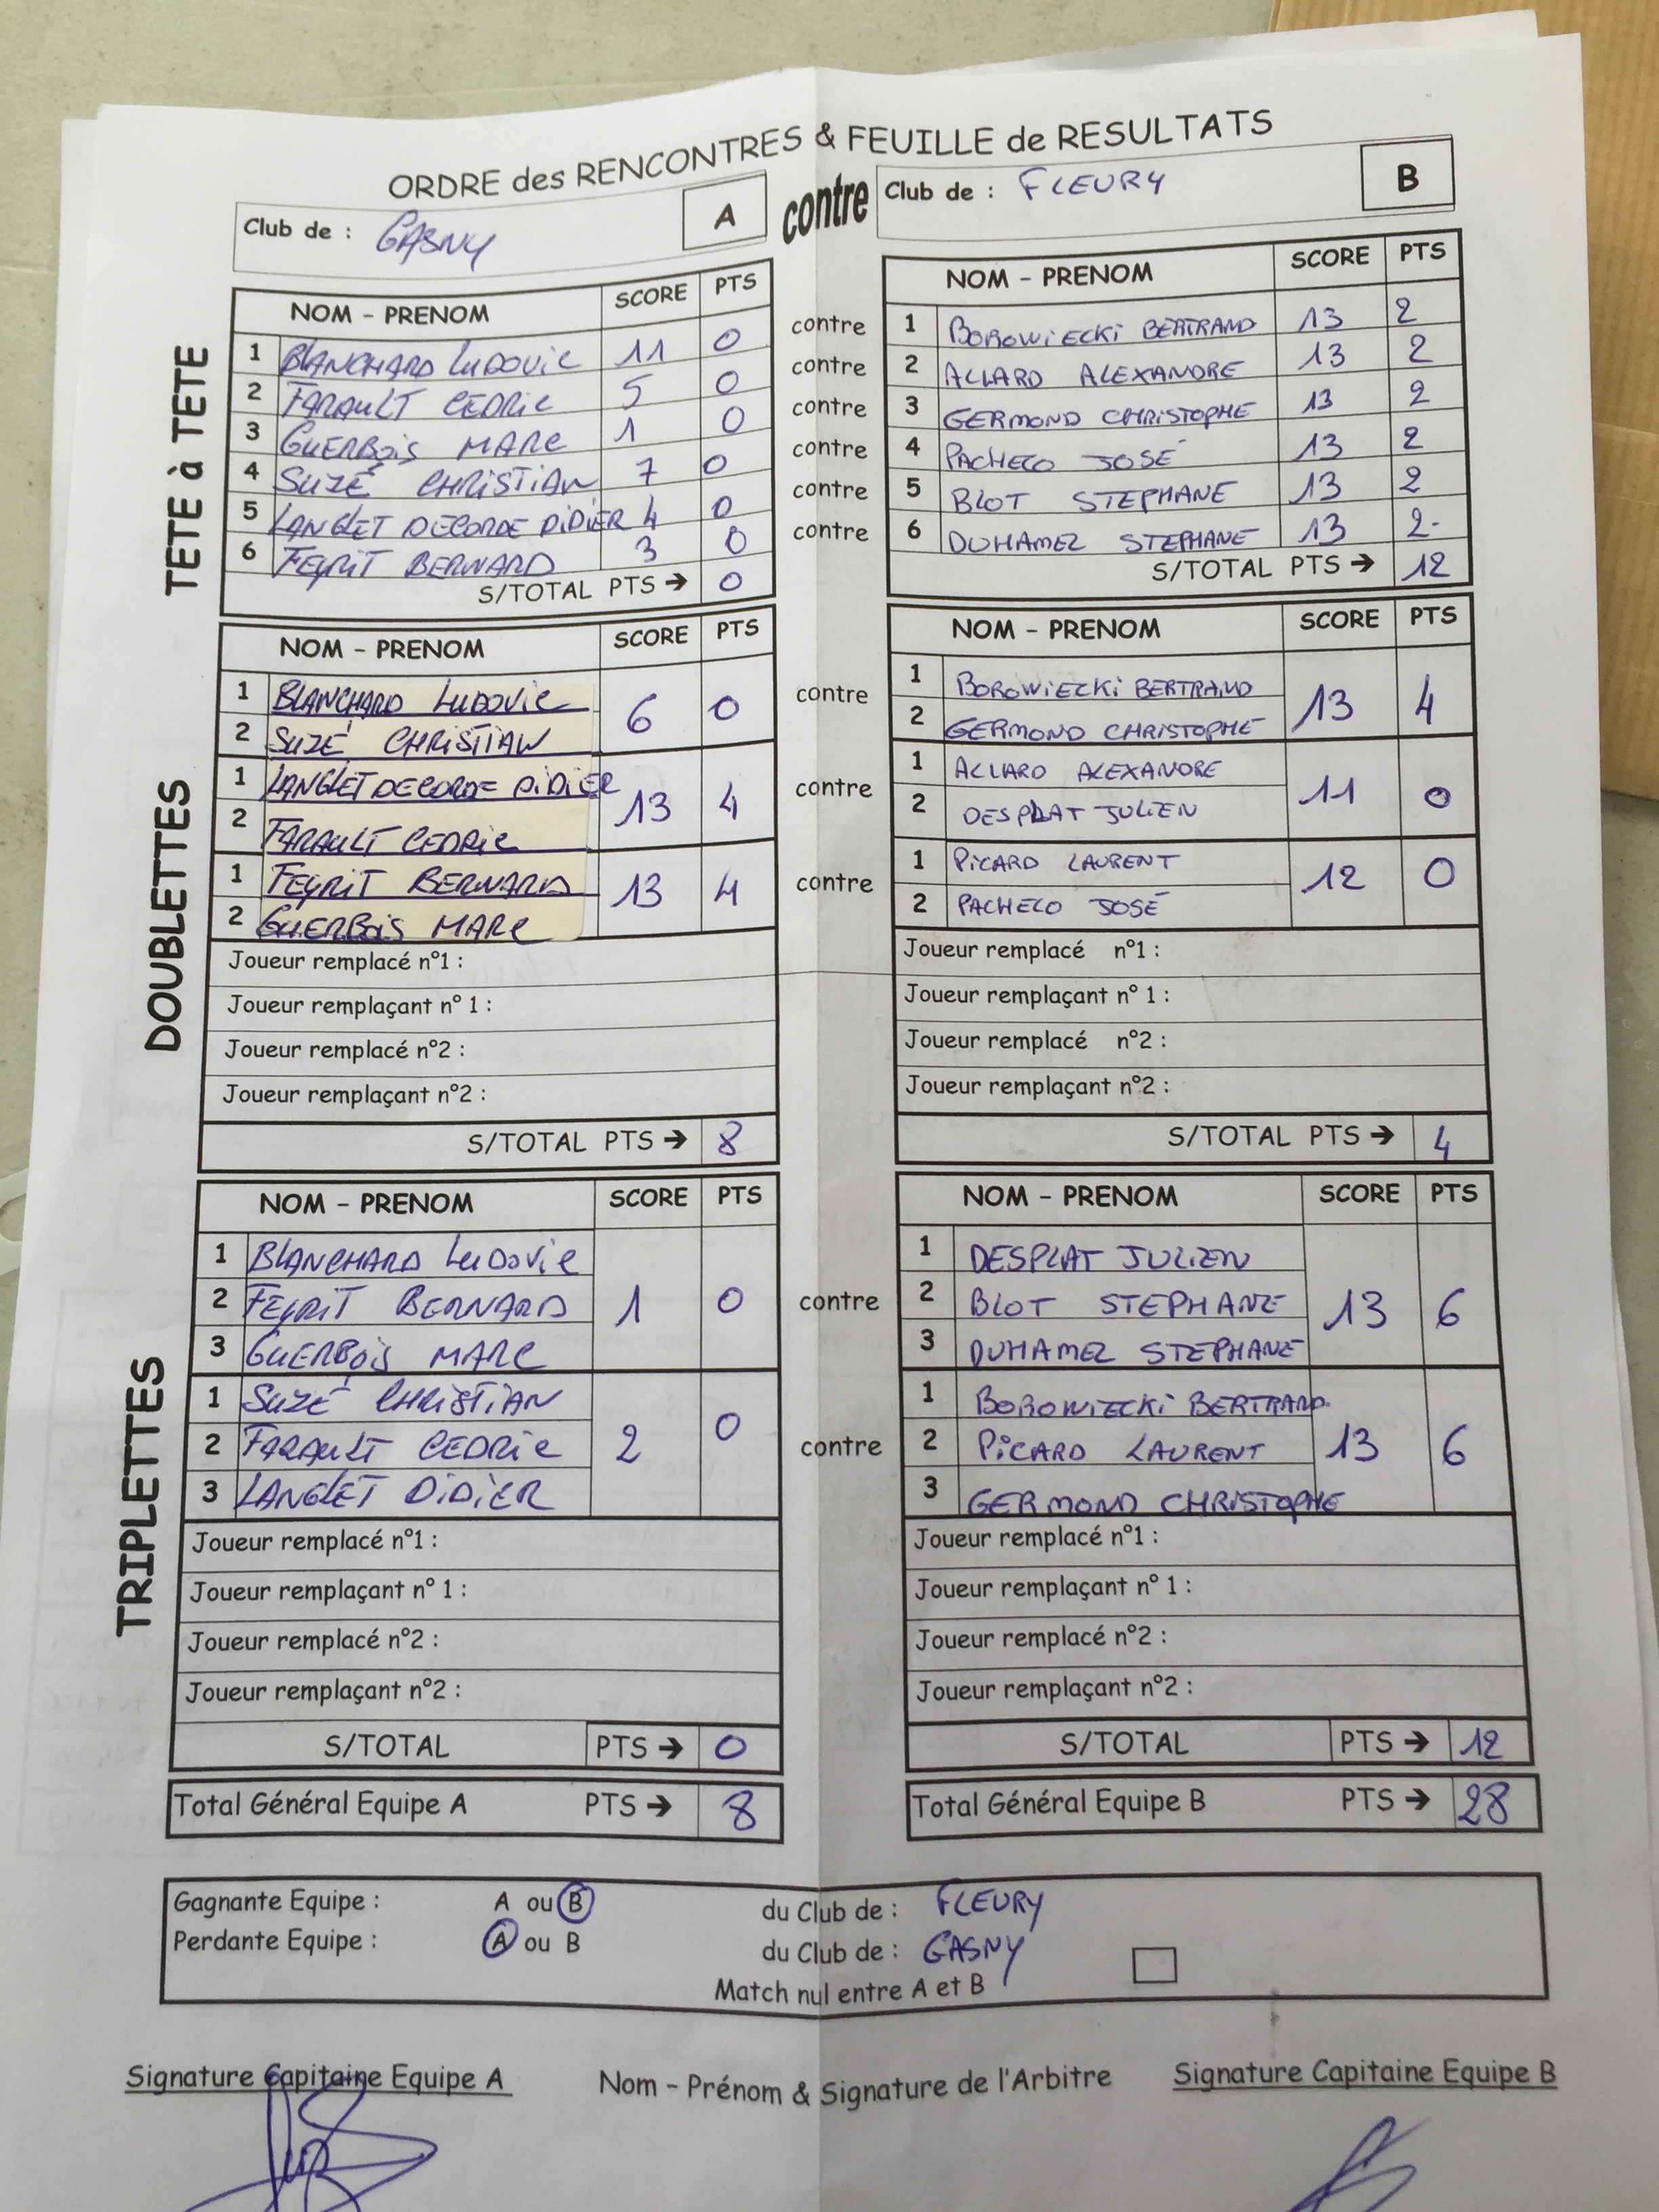 ORDRE des RENCONTRES & FEUILLE de RESULTATS
Club de : GASNY A contre Club de : FLEURY B
TETE à TETE
NOM - PRENOM SCORE PTS NOM - PRENOM SCORE PTS
1 BLANCHARD LUDOVIC 11 0 contre 1 BOROWIECKI BERTRAND 13 2
2 FARAULT CEDRIC 5 0 contre 2 ALLARD ALEXANDRE 13 2
3 GUERBOIS MARC 1 0 contre 3 GERMOND CHRISTOPHE 13 2
4 SUZÉ CHRISTIAN 7 0 contre 4 PACHECO JOSÉ 13 2
5 LANGLET DECORDE DIDIER 4 0 contre 5 BLOT STEPHANE 13 2
6 FEYRIT BERNARD 3 0 contre 6 DUHAMEL STEPHANE 13 2
S/TOTAL PTS → 0 S/TOTAL PTS → 12
DOUBLETTES
NOM - PRENOM SCORE PTS NOM - PRENOM SCORE PTS
1 BLANCHARD LUDOVIC 6 0 contre 1 BOROWIECKI BERTRAND 13 4
2 SUZÉ CHRISTIAN 2 GERMOND CHRISTOPHE
1 LANGLET DECORDE DIDIER 13 4 contre 1 ALLARD ALEXANDRE 11 0
2 FARAULT CEDRIC 2 DESPLAT JULIEN
1 FEYRIT BERNARD 13 4 contre 1 PICARD LAURENT 12 0
2 GUERBOIS MARC 2 PACHECO JOSÉ
Joueur remplacé n°1 : Joueur remplacé n°1 :
Joueur remplaçant n° 1 : Joueur remplaçant n° 1 :
Joueur remplacé n°2 : Joueur remplacé n°2 :
Joueur remplaçant n°2 : Joueur remplaçant n°2 :
S/TOTAL PTS → 8 S/TOTAL PTS → 4
TRIPLETTES
NOM - PRENOM SCORE PTS NOM - PRENOM SCORE PTS
1 BLANCHARD LUDOVIC 1 DESPLAT JULIEN
2 FEYRIT BERNARD 1 0 contre 2 BLOT STEPHANE 13 6
3 GUERBOIS MARC 3 DUHAMEL STEPHANE
1 SUZÉ CHRISTIAN 1 BOROWIECKI BERTRAND
2 FARAULT CEDRIC 2 0 contre 2 PICARD LAURENT 13 6
3 LANGLET DIDIER 3 GERMOND CHRISTOPHE
Joueur remplacé n°1 : Joueur remplacé n°1 :
Joueur remplaçant n° 1 : Joueur remplaçant n° 1 :
Joueur remplacé n°2 : Joueur remplacé n°2 :
Joueur remplaçant n°2 : Joueur remplaçant n°2 :
S/TOTAL PTS → 0 S/TOTAL PTS → 12
Total Général Equipe A PTS → 8 Total Général Equipe B PTS → 28
Gagnante Equipe : A ou B du Club de : FLEURY
Perdante Equipe : A ou B du Club de : GASNY
Match nul entre A et B
Signature Capitaine Equipe A Nom - Prénom & Signature de l'Arbitre Signature Capitaine Equipe B